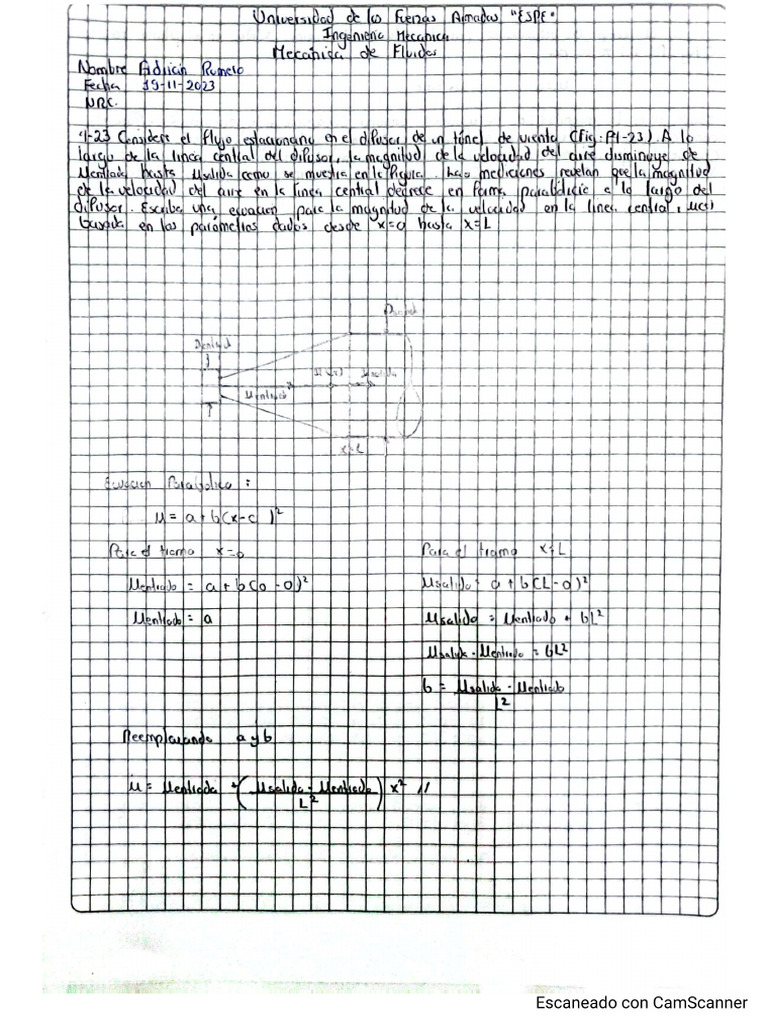 Universidad de las Fuerzas Armadas "ESPE"
Ingenieria Mecanica
Mecánica de Fluidos
Nombre Adrián Romero
Fecha 19-11-2023
NRC.
4-23 Considere el flujo estacionario en el difusor de un túnel de viento (Fig. P4-23). A lo
largo de la linea central del difusor, la magnitud de la velocidad del aire disminuye de
Uentrada hasta Usalida como se muestra en la figura. Las mediciones revelan que la magnitud
de la velocidad del aire en la linea central decrece en forma parabólica a lo largo del
difusor. Escriba una ecuacion para la magnitud de la velocidad en la linea central, u(x)
basada en los parámetros dados desde x=0 hasta x=L
Dentrad
Uentrada
u(x)
Usalida
x=L
Ecuacion Parabolica :
u = a + b(x-c )²
Para el tramo x=0
Uentrada = a + b(0 - 0)²
Uentrada = a
Para el tramo x=L
Usalida = a + b(L-0)²
Usalida = Uentrada + bL²
Usalida - Uentrada = bL²
b = Usalida - Uentrada
L²
Reemplazando a y b
u = Uentrada + (Usalida - Uentrada / L²) x² //
Escaneado con CamScanner